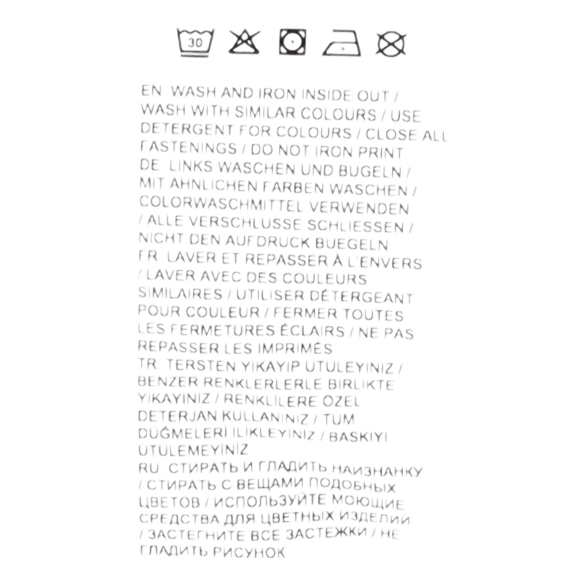 30
EN WASH AND IRON INSIDE OUT /
WASH WITH SIMILAR COLOURS / USE
DETERGENT FOR COLOURS / CLOSE ALL
FASTENINGS / DO NOT IRON PRINT
DE LINKS WASCHEN UND BUGELN /
MIT AHNLICHEN FARBEN WASCHEN /
COLORWASCHMITTEL VERWENDEN
/ ALLE VERSCHLUSSE SCHLIESSEN /
NICHT DEN AUFDRUCK BUEGELN
FR LAVER ET REPASSER À L'ENVERS
/ LAVER AVEC DES COULEURS
SIMILAIRES / UTILISER DÉTERGEANT
POUR COULEUR / FERMER TOUTES
LES FERMETURES ÉCLAIRS / NE PAS
REPASSER LES IMPRIMÉS
TR TERSTEN YIKAYIP UTULEYINIZ /
BENZER RENKLERLERLE BIRLIKTE
YIKAYINIZ / RENKLILERE ÖZEL
DETERJAN KULLANINIZ / TUM
DUĞMELERİ ILIKLEYİNİZ / BASKIYI
UTULEMEYİNİZ
RU СТИРАТЬ И ГЛАДИТЬ НАИЗНАНКУ
/ СТИРАТЬ С ВЕЩАМИ ПОДОБНЫХ
ЦВЕТОВ / ИСПОЛЬЗУЙТЕ МОЮЩИЕ
СРЕДСТВА ДЛЯ ЦВЕТНЫХ ИЗДЕЛИЙ
/ ЗАСТЕГНИТЕ ВСЕ ЗАСТЕЖКИ / НЕ
ГЛАДИТЬ РИСУНОК